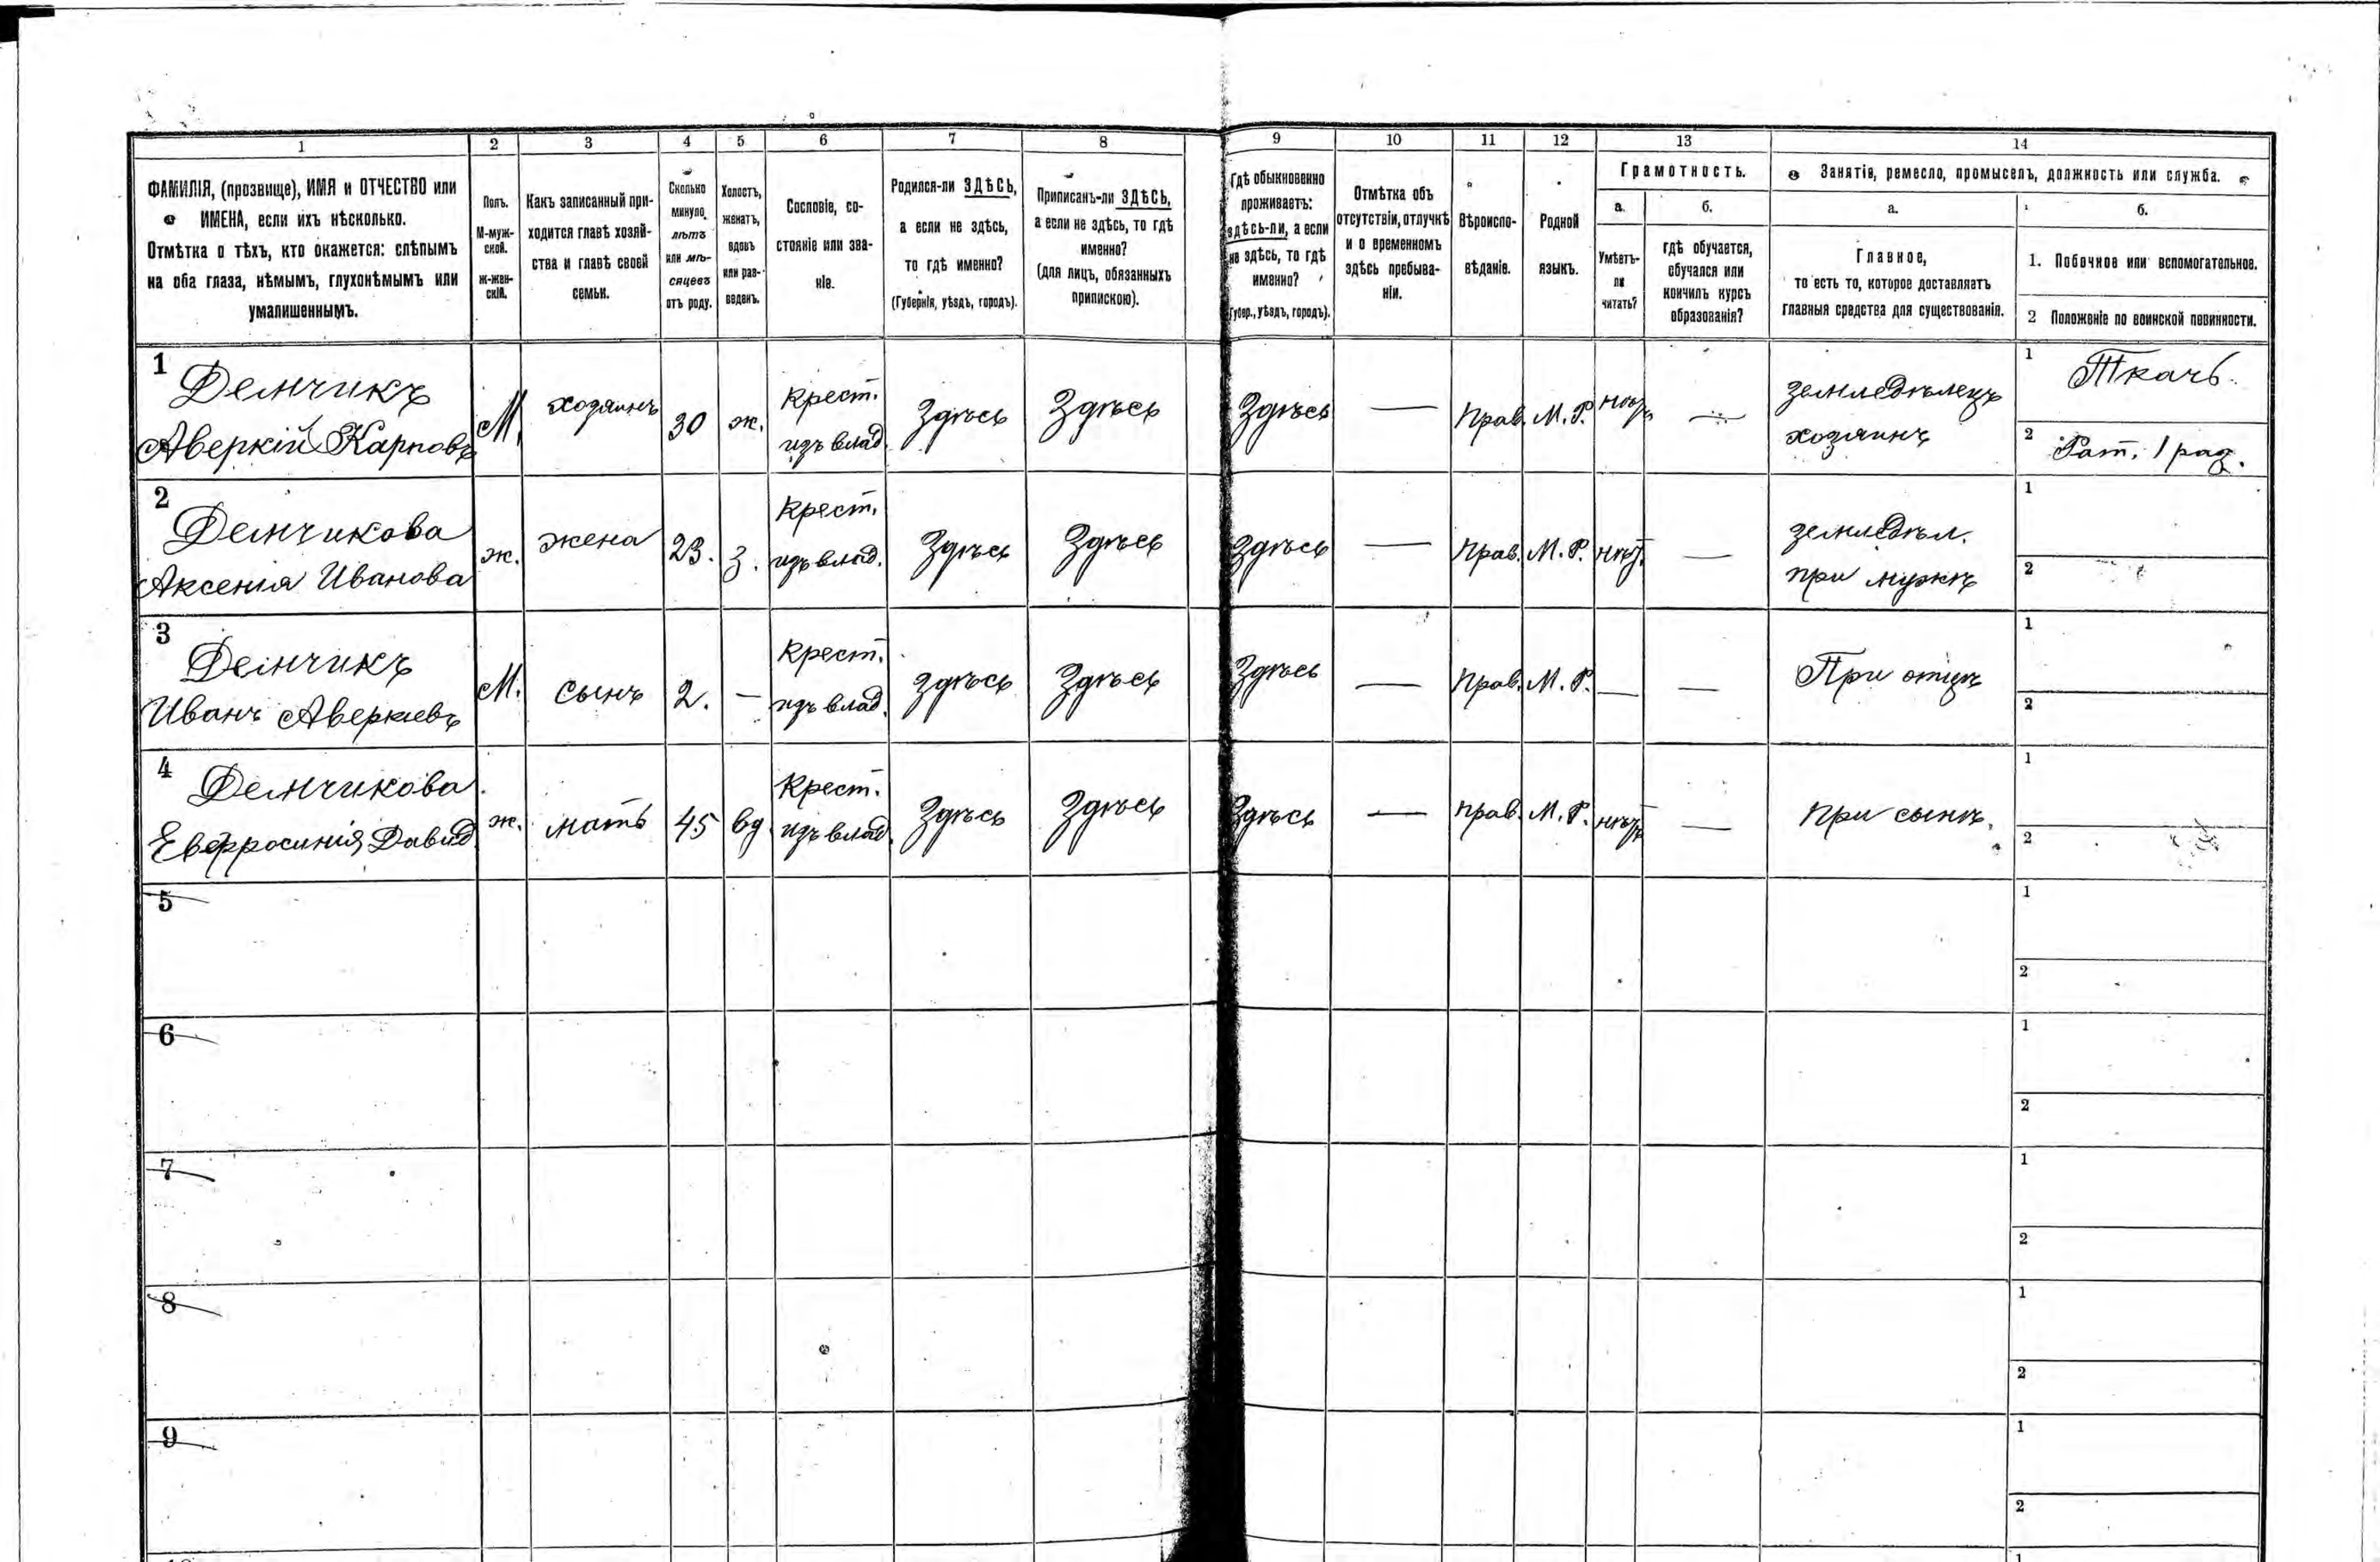 1 2 3 4 5 6 7 8 9 10 11 12 13 14
ФАМИЛІЯ, (прозвище), ИМЯ и ОТЧЕСТВО или
ИМЕНА, если ихъ нѣсколько.
Отмѣтка о тѣхъ, кто окажется: слѣпымъ
на оба глаза, нѣмымъ, глухонѣмымъ или
умалишеннымъ.
Полъ.
М-муж-
ской.
Ж-жен-
скій.
Какъ записанный при-
ходится главѣ хозяй-
ства и главѣ своей
семьи.
Сколько
минуло
лѣтъ
или мѣ-
сяцевъ
отъ роду.
Холостъ,
женатъ,
вдовъ
или раз-
веденъ.
Сословіе, со-
стояніе или зва-
ніе.
Родился-ли ЗДѢСЬ,
а если не здѣсь,
то гдѣ именно?
(Губернія, уѣздъ, городъ).
Приписанъ-ли ЗДѢСЬ,
а если не здѣсь, то гдѣ
именно?
(для лицъ, обязанныхъ
припискою).
Гдѣ обыкновенно
проживаетъ:
здѣсь-ли, а если
не здѣсь, то гдѣ
именно?
(Губер., уѣздъ, городъ).
Отмѣтка объ
отсутствіи, отлучкѣ
и о временномъ
здѣсь пребыва-
ніи.
Вѣроиспо-
вѣданіе.
Родной
языкъ.
Грамотность.
а.
Умѣетъ-
ли
читать?
б.
гдѣ обучается,
обучался или
кончилъ курсъ
образованія?
Занятія, ремесло, промыселъ, должность или служба.
а.
Главное,
то есть то, которое доставляетъ
главныя средства для существованія.
б.
1. Побочное или вспомогательное.
2 Положеніе по воинской повинности.
1
Демчикъ
Аверкій Карповъ
М.
хозяинъ
30
ж.
Крест.
изъ влад.
Здѣсь
Здѣсь
Здѣсь
—
Прав.
М. Р.
нѣтъ
—
земледѣлецъ
хозяинъ
1 Ткачъ.
2 Рат. 1 раз.
2
Демчикова
Аксенія Иванова
ж.
жена
23.
з.
Крест.
изъ влад.
Здѣсь
Здѣсь
Здѣсь
—
Прав.
М. Р.
нѣт.
—
земледѣл.
при мужѣ
1
2
3
Демчикъ
Иванъ Аверкіевъ
М.
сынъ
2.
—
Крест.
изъ влад.
Здѣсь
Здѣсь
Здѣсь
—
Прав.
М. Р.
—
—
При отцѣ
1
2
4
Демчикова
Евфросинія Давид.
ж.
мать
45
вд.
Крест.
изъ влад.
Здѣсь
Здѣсь
Здѣсь
—
Прав.
М. Р.
нѣтъ
—
При сынѣ.
1
2
5
1
2
6
1
2
7
1
2
8
1
2
9
1
2
1